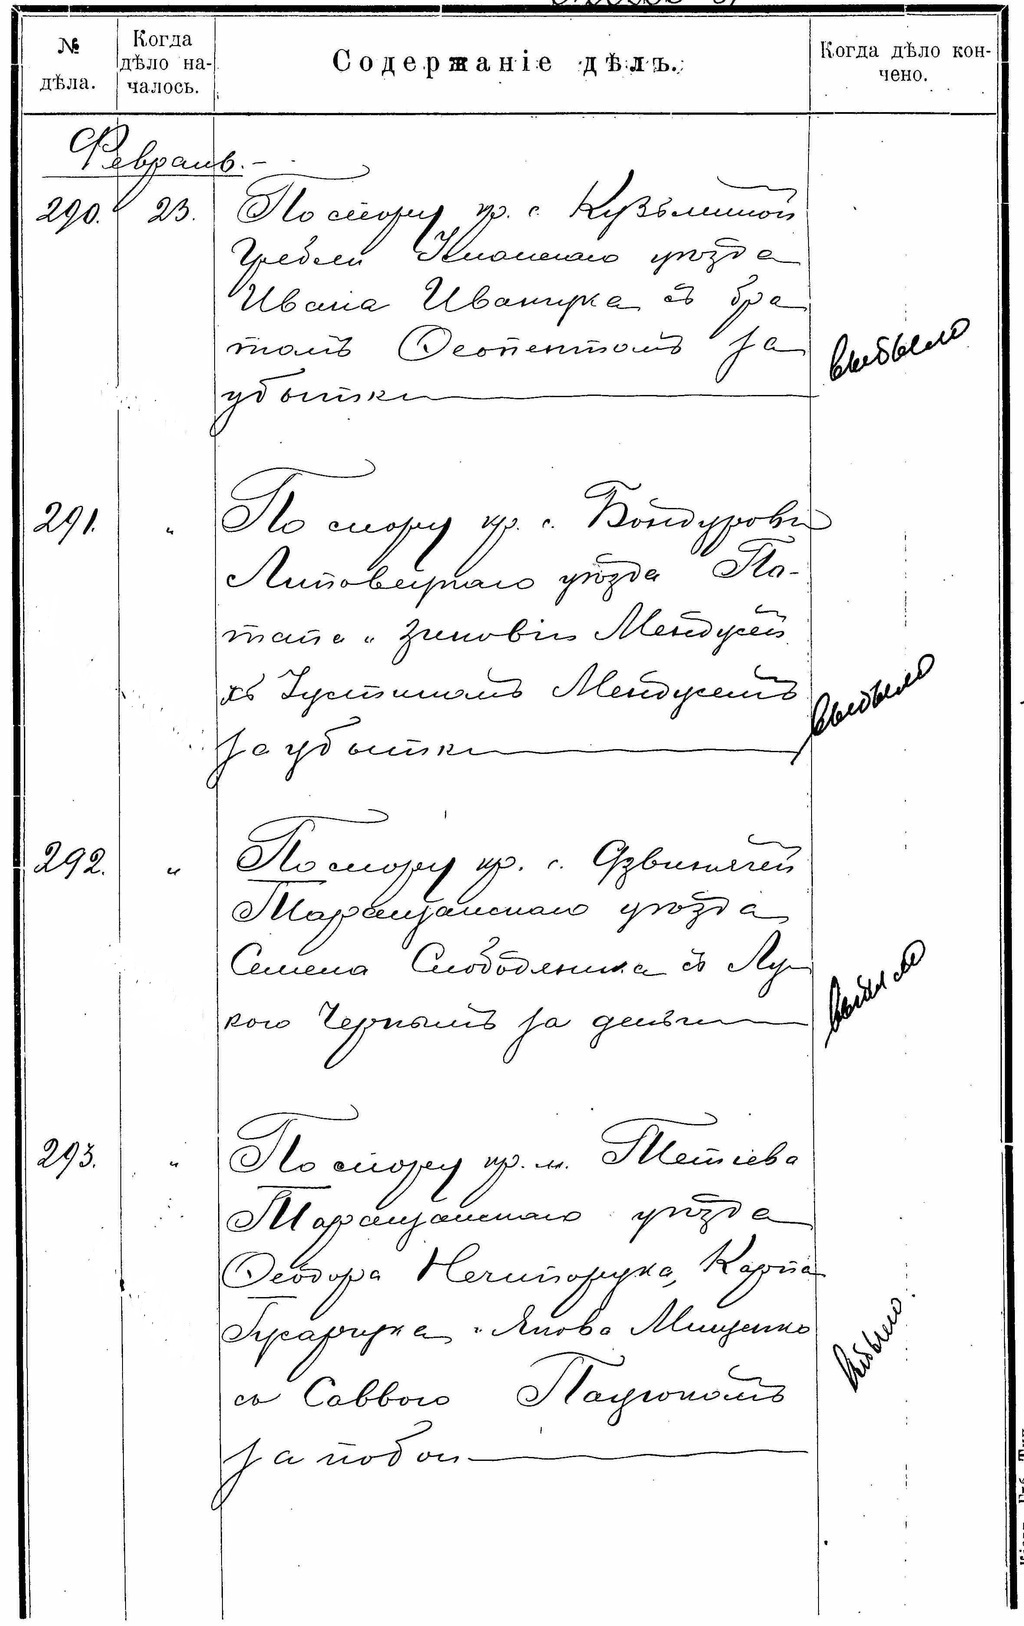 № дѣла.
Когда дѣло на-чалось.
Содержаніе дѣлъ.
Когда дѣло кон-чено.
Февраль.-
290. 23. По спору кр. с. Кузьминой
Гребли Уманскаго уѣзда
Ивана Иванчука съ бра
томъ Феопентомъ за
убытки
выбыло
291. " По спору кр. с. Бондуровки
Липовецкаго уѣзда По-
тапа и Зиновія Мендусей
съ Іустиномъ Мендусемъ
за убытки
выбыло
292. " По спору кр. с. Дзвинячей
Таращанскаго уѣзда
Семена Слободяника съ Лу
кою Чернымъ за деньги
выбыло
293. " По спору кр. м. Тетіева
Таращанскаго уѣзда
Феодора Нечипорука, Карпа
Гусарука и Якова Мищенко
съ Саввою Пацюкомъ
за побои
выбыло